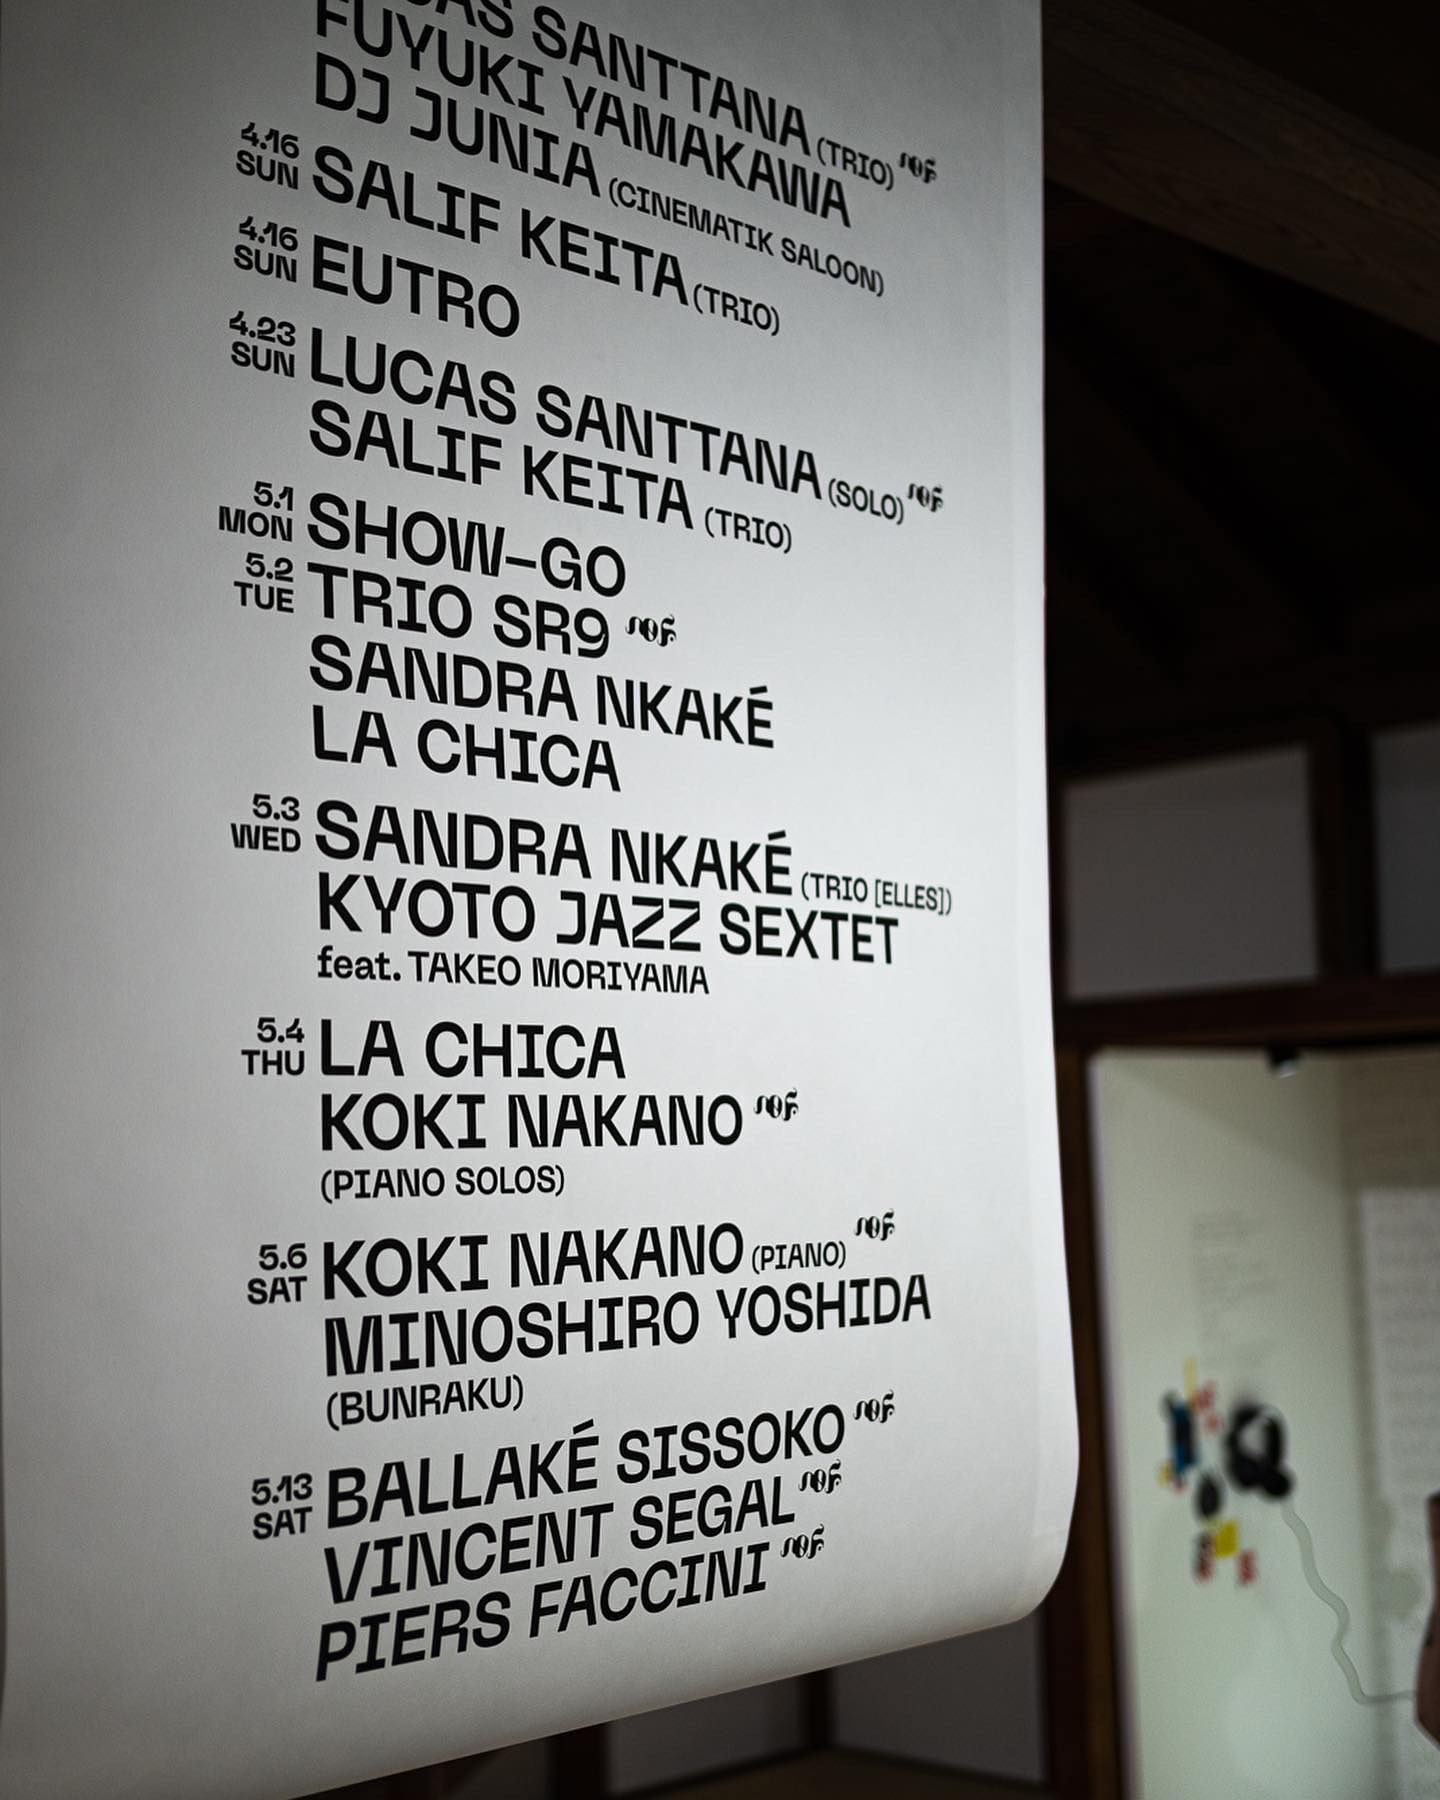 SANTTANA (TRIO)
FUYUKI YAMAKAWA
DJ JUNIA (CINEMATIK SALOON)
4.16
SUN
SALIF KEITA (TRIO)
4.16
SUN
EUTRO
4.23
SUN
LUCAS SANTTANA (SOLO)
SALIF KEITA (TRIO)
5.1
MON
SHOW-GO
5.2
TUE
TRIO SR9
SANDRA NKAKÉ
LA CHICA
5.3
WED
SANDRA NKAKÉ (TRIO [ELLES])
KYOTO JAZZ SEXTET
feat. TAKEO MORIYAMA
5.4
THU
LA CHICA
KOKI NAKANO
(PIANO SOLOS)
5.6
SAT
KOKI NAKANO (PIANO)
MINOSHIRO YOSHIDA
(BUNRAKU)
5.13
SAT
BALLAKÉ SISSOKO
VINCENT SEGAL
PIERS FACCINI